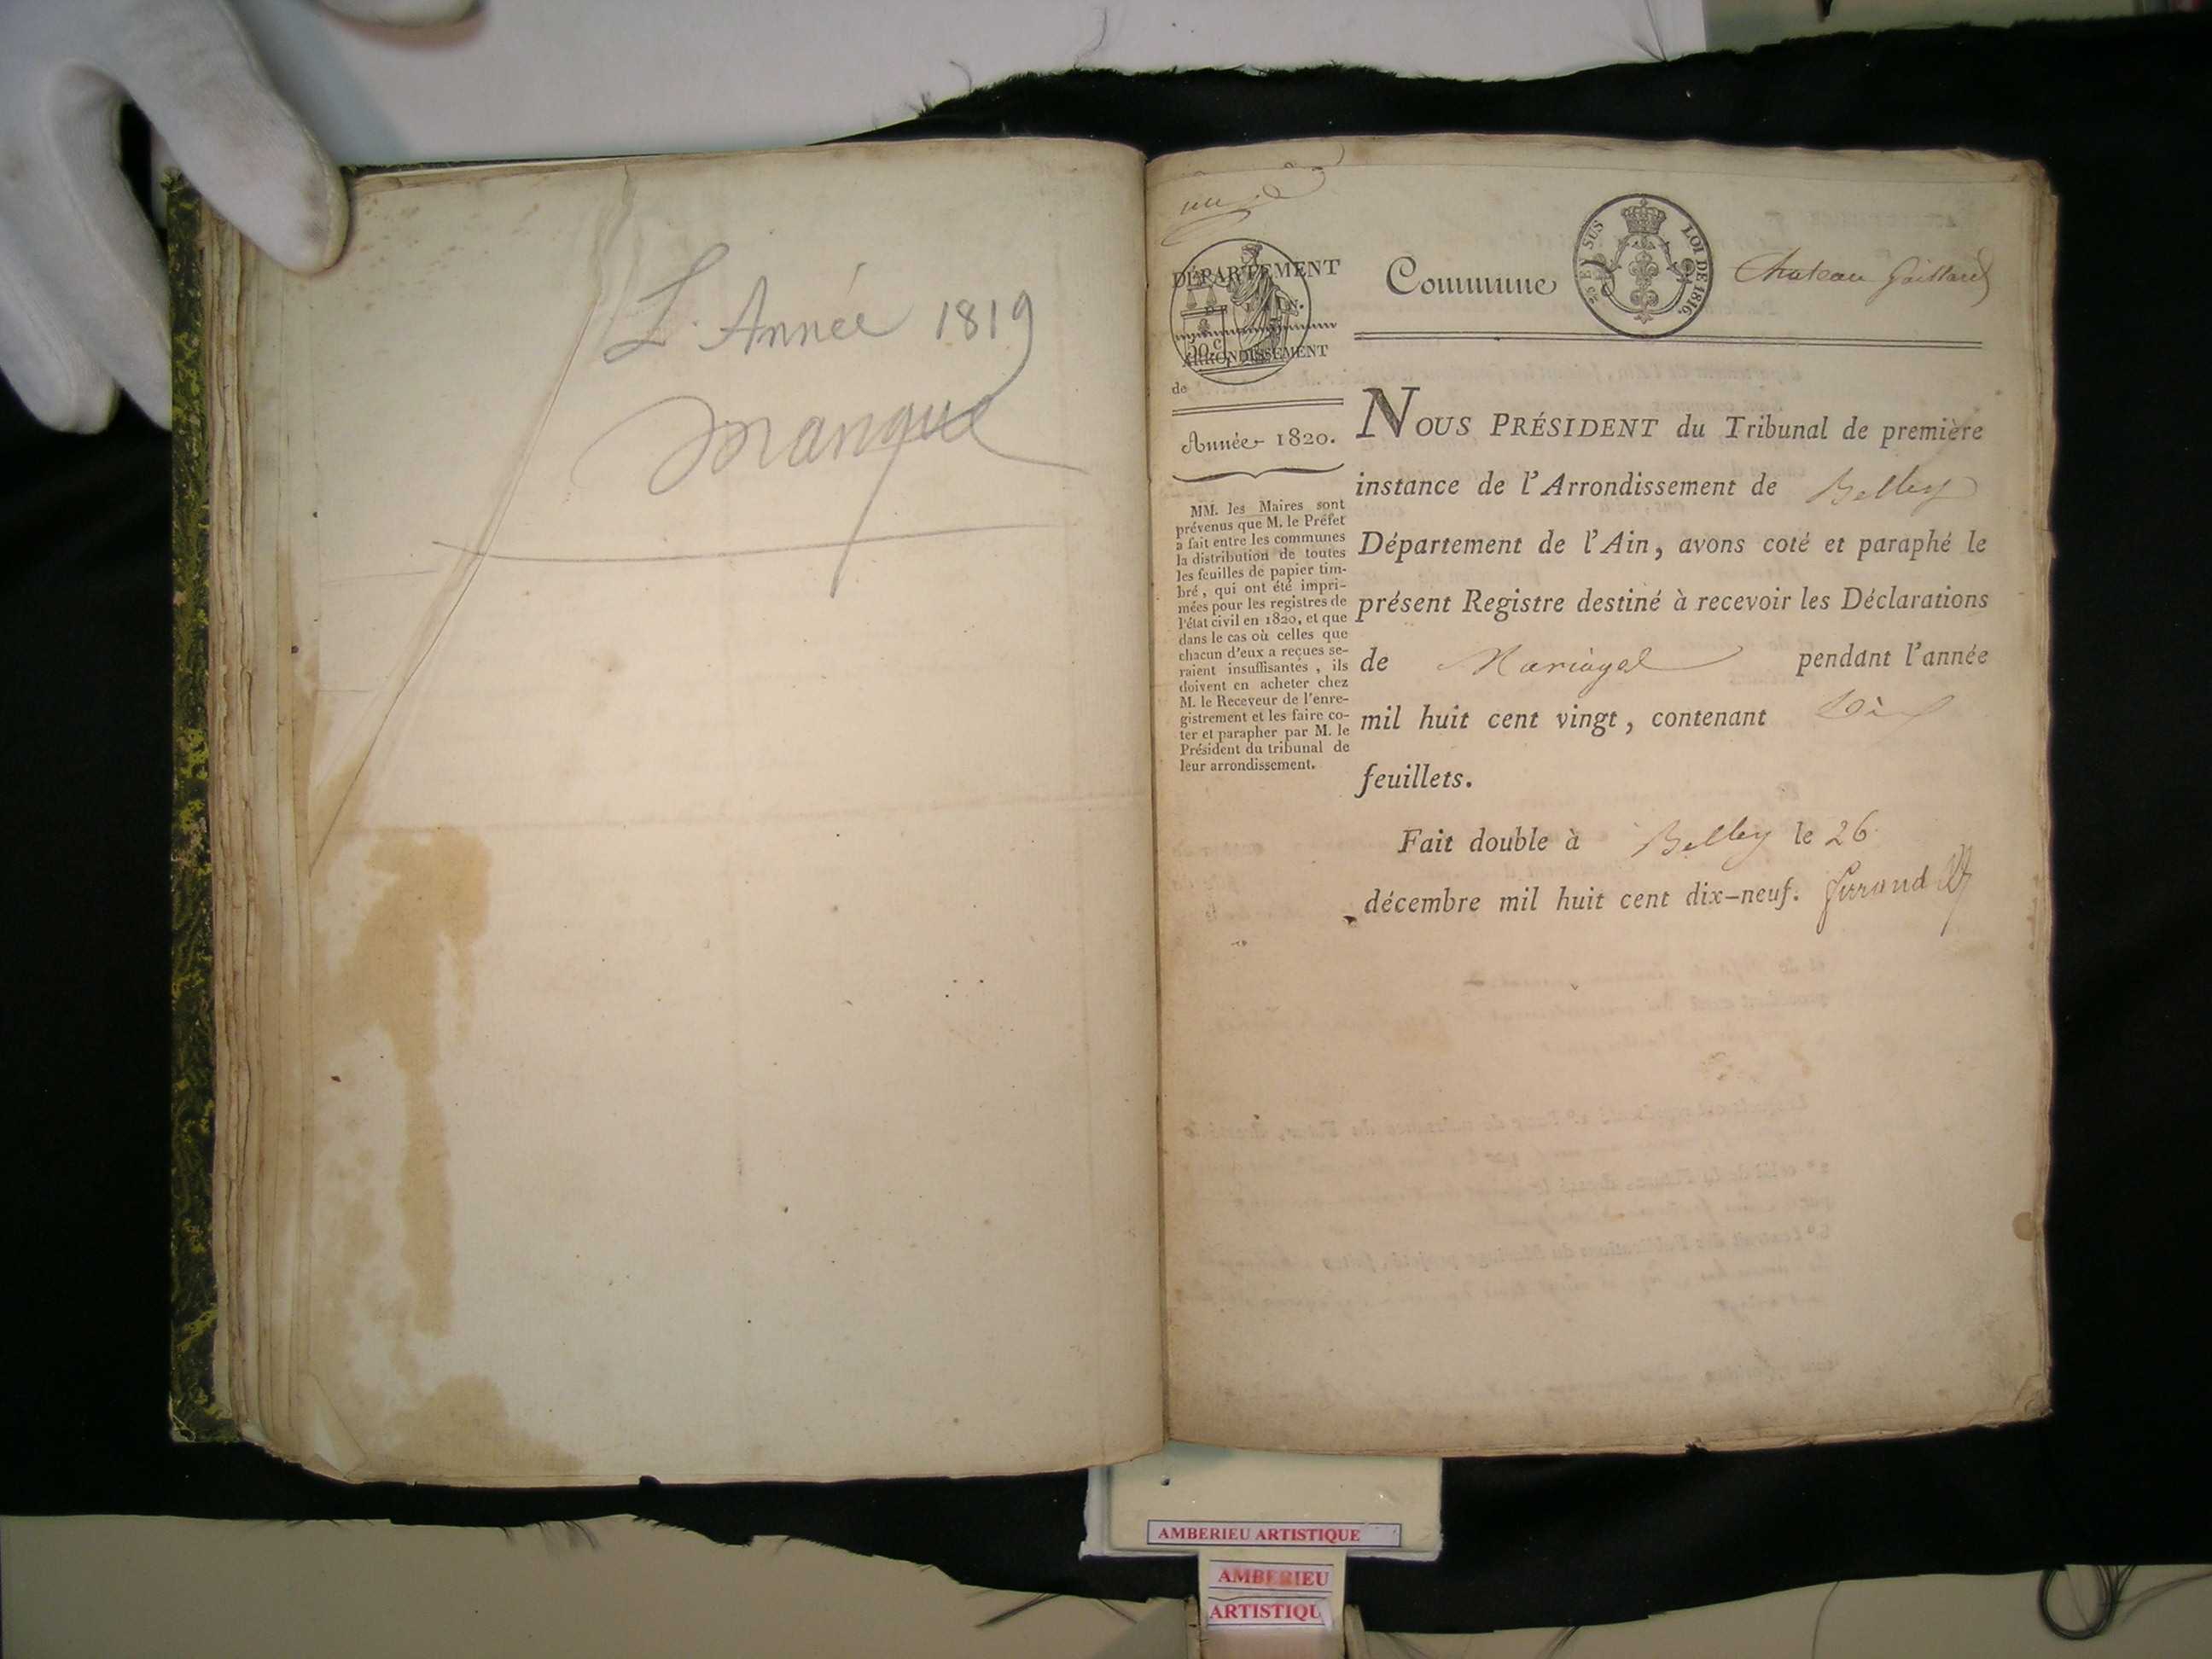 L'Année 1819
manque
DÉPARTEMENT
50 c
ARRONDISSEMENT
de
Commune
EN SUS
LOI DE 1816.
Chateau Gaillard
Année 1820.
MM. les Maires sont
prévenus que M. le Préfet
a fait entre les communes
la distribution de toutes
les feuilles de papier tim-
bré, qui ont été impri-
mées pour les registres de
l'état civil en 1820, et que
dans le cas où celles que
chacun d'eux a reçues se-
raient insuffisantes, ils
doivent en acheter chez
M. le Receveur de l'enre-
gistrement et les faire co-
ter et parapher par M. le
Président du tribunal de
leur arrondissement.
NOUS PRÉSIDENT du Tribunal de première
instance de l'Arrondissement de Belley
Département de l'Ain, avons coté et paraphé le
présent Registre destiné à recevoir les Déclarations
de Mariages pendant l'année
mil huit cent vingt, contenant Dix
feuillets.
Fait double à Belley le 26
décembre mil huit cent dix-neuf.
AMBERIEU ARTISTIQUE
AMBERIEU
ARTISTIQU